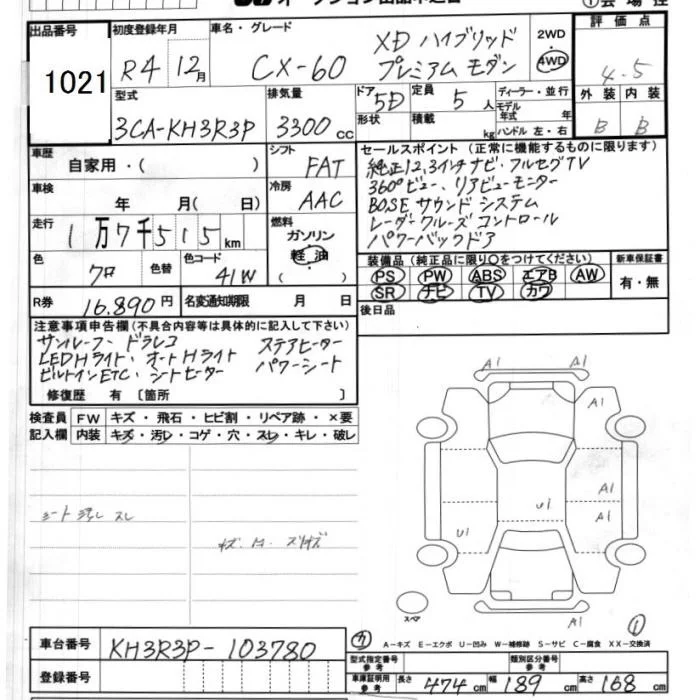 出品番号
1021
初度登録年月
R4 12月
車名・グレード
CX-60
XD ハイブリッド
プレミアム モダン
2WD
4WD
評価点
4.5
外装 内装
B B
型式
3CA-KH3R3P
排気量
3300 cc
ドア
5D
形状
定員
5 人
積載
kg
ディーラー・並行
モデル年式 年
ハンドル 左・右
車歴
自家用・( )
シフト
FAT
車検
年 月( 日)
冷房
AAC
走行
1万7千515km
燃料
ガソリン
軽油
( )
色
クロ
色替
色コード
41W
R券
16.890円
名変通知期限 月 日
セールスポイント (正常に機能するものに限ります)
純正12.3インチナビ・フルセグTV
360°ビュー、リアビューモニター
BOSE サウンドシステム
レーダークルーズコントロール
パワーバックドア
装備品 (純正品に限り○をつけてください)
PS PW ABS エアB AW
SR ナビ TV カワ
新車保証書
有・無
後日品
注意事項申告欄 (不具合内容等は具体的に記入して下さい)
サンルーフ・ドラレコ ステアヒーター
LEDHライト・オートHライト パワーシート
ビルトインETC・シートヒーター
修復歴 有 〔箇所 〕
検査員 FW キズ・飛石・ヒビ割・リペア跡・×要
記入欄 内装 キズ・汚レ・コゲ・穴・スレ・キレ・破レ
シート汚レ スレ
A1
A1
A1
A1
A1
U1
U1
A1
スペア
①
車台番号
KH3R3P-103780
登録番号
A-キズ E-エクボ U-凹み W-補修跡 S-サビ C-腐食 XX-交換済
型式指定番号
参考
類別区分番号
参考
車庫証明用
参考
長さ 474 cm 幅 189 cm 高さ 168 cm